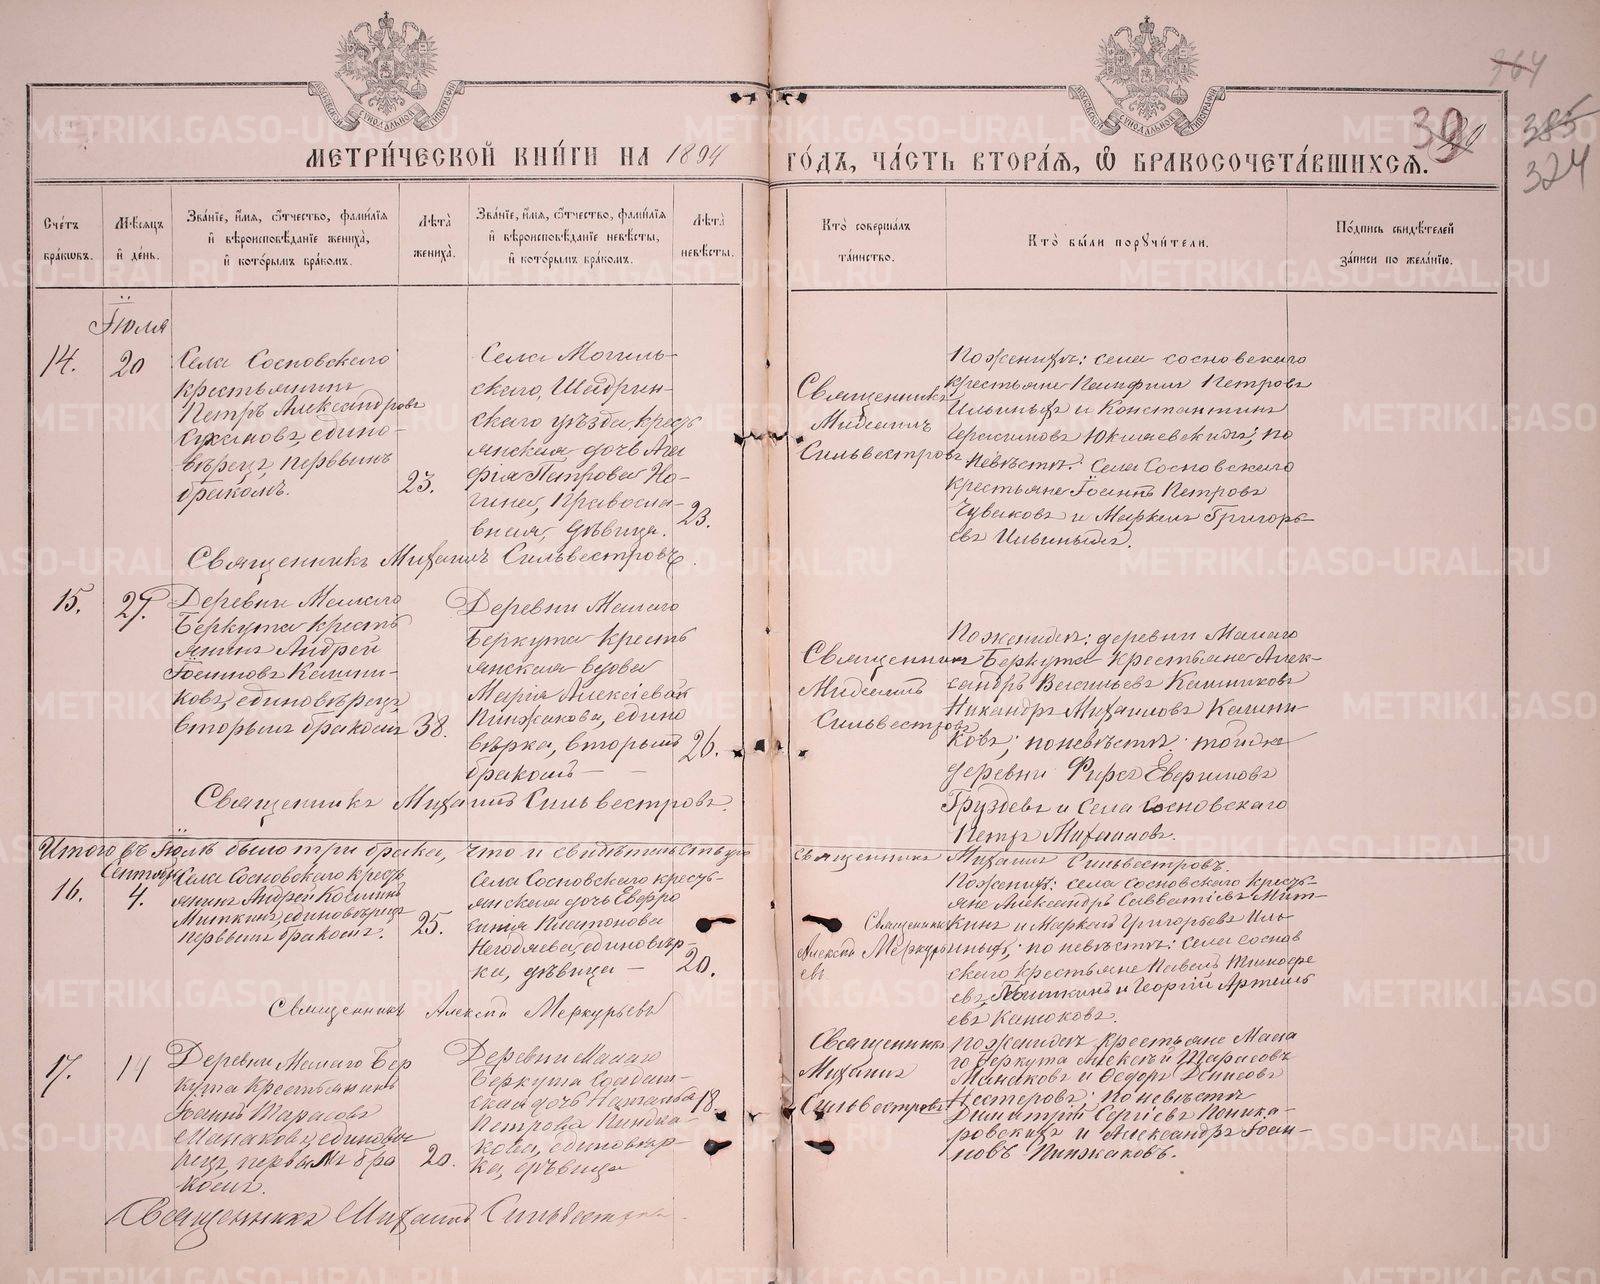 МЕТРИ́ЧЕСКОЙ КНИ́ГИ НА 1894 ГО́ДЪ, ЧА́СТЬ ВТОРА́Я, Ѿ БРАКОСОЧЕТА́ВШИХСЯ.
39
385
324
Сче́тъ бра́ковъ.
Мѣ́сяцъ и́ де́нь.
Зва́нїе, и́мя, ѻ́тчество, фами́лїя и́ вѣроисповѣ́данїе жениха̀, и́ кото́рымъ бра́комъ.
Лѣ́та жениха̀.
Зва́нїе, и́мя, ѻ́тчество, фами́лїя и́ вѣроисповѣ́данїе невѣ́сты, и́ кото́рымъ бра́комъ.
Лѣ́та невѣ́сты.
Кто̀ соверша́лъ та́инство.
Кто̀ бы́ли поручи́тели.
По́дпись свидѣ́телей за́писи по жела́нїю.
Іюля
14.
20
Села Сосновскаго
крестьянинъ
Петръ Александровъ
едино-
вѣрецъ, первымъ
бракомъ.
23.
Села Могиль-
скаго, Шадрин-
скаго уѣзда, кресть
янская дочь Ага
фія Петрова Но-
гина, Правосла-
вная, дѣвица.
23.
Священникъ
Михаилъ
Сильвестровъ
По женихѣ: села сосновскаго
крестьяне Памфилъ Петровъ
Ильиныхъ и Константинъ
Герасимовъ Юкляевскихъ; по
невѣстѣ: Села Сосновскаго
крестьяне Іоаннъ Петровъ
Чуваковъ и Маркелъ Григорь-
евъ Ильиныхъ.
Священникъ Михаилъ Сильвестровъ.
15.
27.
Деревни Малаго
Беркута кресть
янинъ Андрей
Іоанновъ Калини-
ковъ, единовѣрецъ,
вторымъ бракомъ
38.
Деревни Малаго
Беркута кресть
янская вдова
Марія Алексіевна
Пинжакова, едино
вѣрка, вторымъ
бракомъ —
26.
Священникъ
Михаилъ
Сильвестровъ
По женихѣ: деревни Малаго
Беркута крестьяне Алек-
сандръ Васильевъ Калиниковъ
Никандръ Михаиловъ Калини-
ковъ; по невѣстѣ: той же
деревни Фирсъ Евфимовъ
Груздевъ и Села Сосновскаго
Петръ Михаиловъ.
Священникъ Михаилъ Сильвестровъ.
Итого въ Іюлѣ было три брака, что и свидѣтельствую
священникъ Михаилъ Сильвестровъ.
Сентября
16.
4.
Села Сосновскаго кресть
янинъ Андрей Косминъ
Миткинъ, единовѣрецъ
первымъ бракомъ.
25.
Села Сосновскаго кресть-
янская дочь Евфро
синія Платонова
Негодяева, единовѣр-
ка, дѣвица —
20.
Священникъ
Алексій Меркурь
евъ
По женихѣ: села сосновскаго кресть-
яне Александръ Савватіевъ Мит-
кинъ и Маркелъ Григорьевъ Иль-
иныхъ; по невѣстѣ: села соснов
скаго крестьяне Павелъ Тимофе
евъ и Георгій Артемь
евъ Катюковъ.
Священникъ Алексій Меркурьевъ
17.
14
Деревни Малаго Бер
кута Крестьянинъ
Іоаннъ Тарасовъ
Манаковъ, единовѣ
рецъ, первымъ бра
комъ.
20.
Деревни Малаго
Беркута Солдат-
ская дочь Наталья
Петрова Пинжа-
кова, единовѣр-
ка, дѣвица
18.
Священникъ
Михаилъ
Сильвестровъ
По женихѣ крестьяне Мала
го Беркута Алексѣй Тарасовъ
Манаковъ и Ѳедоръ Денисовъ
Нестеровъ; по невѣстѣ
Димитрій Сергіевъ Понка-
ровскихъ и Александръ Іоан-
новъ Пинжаковъ.
Священникъ Михаилъ Сильвестровъ
METRIKI.GASO-URAL.RU